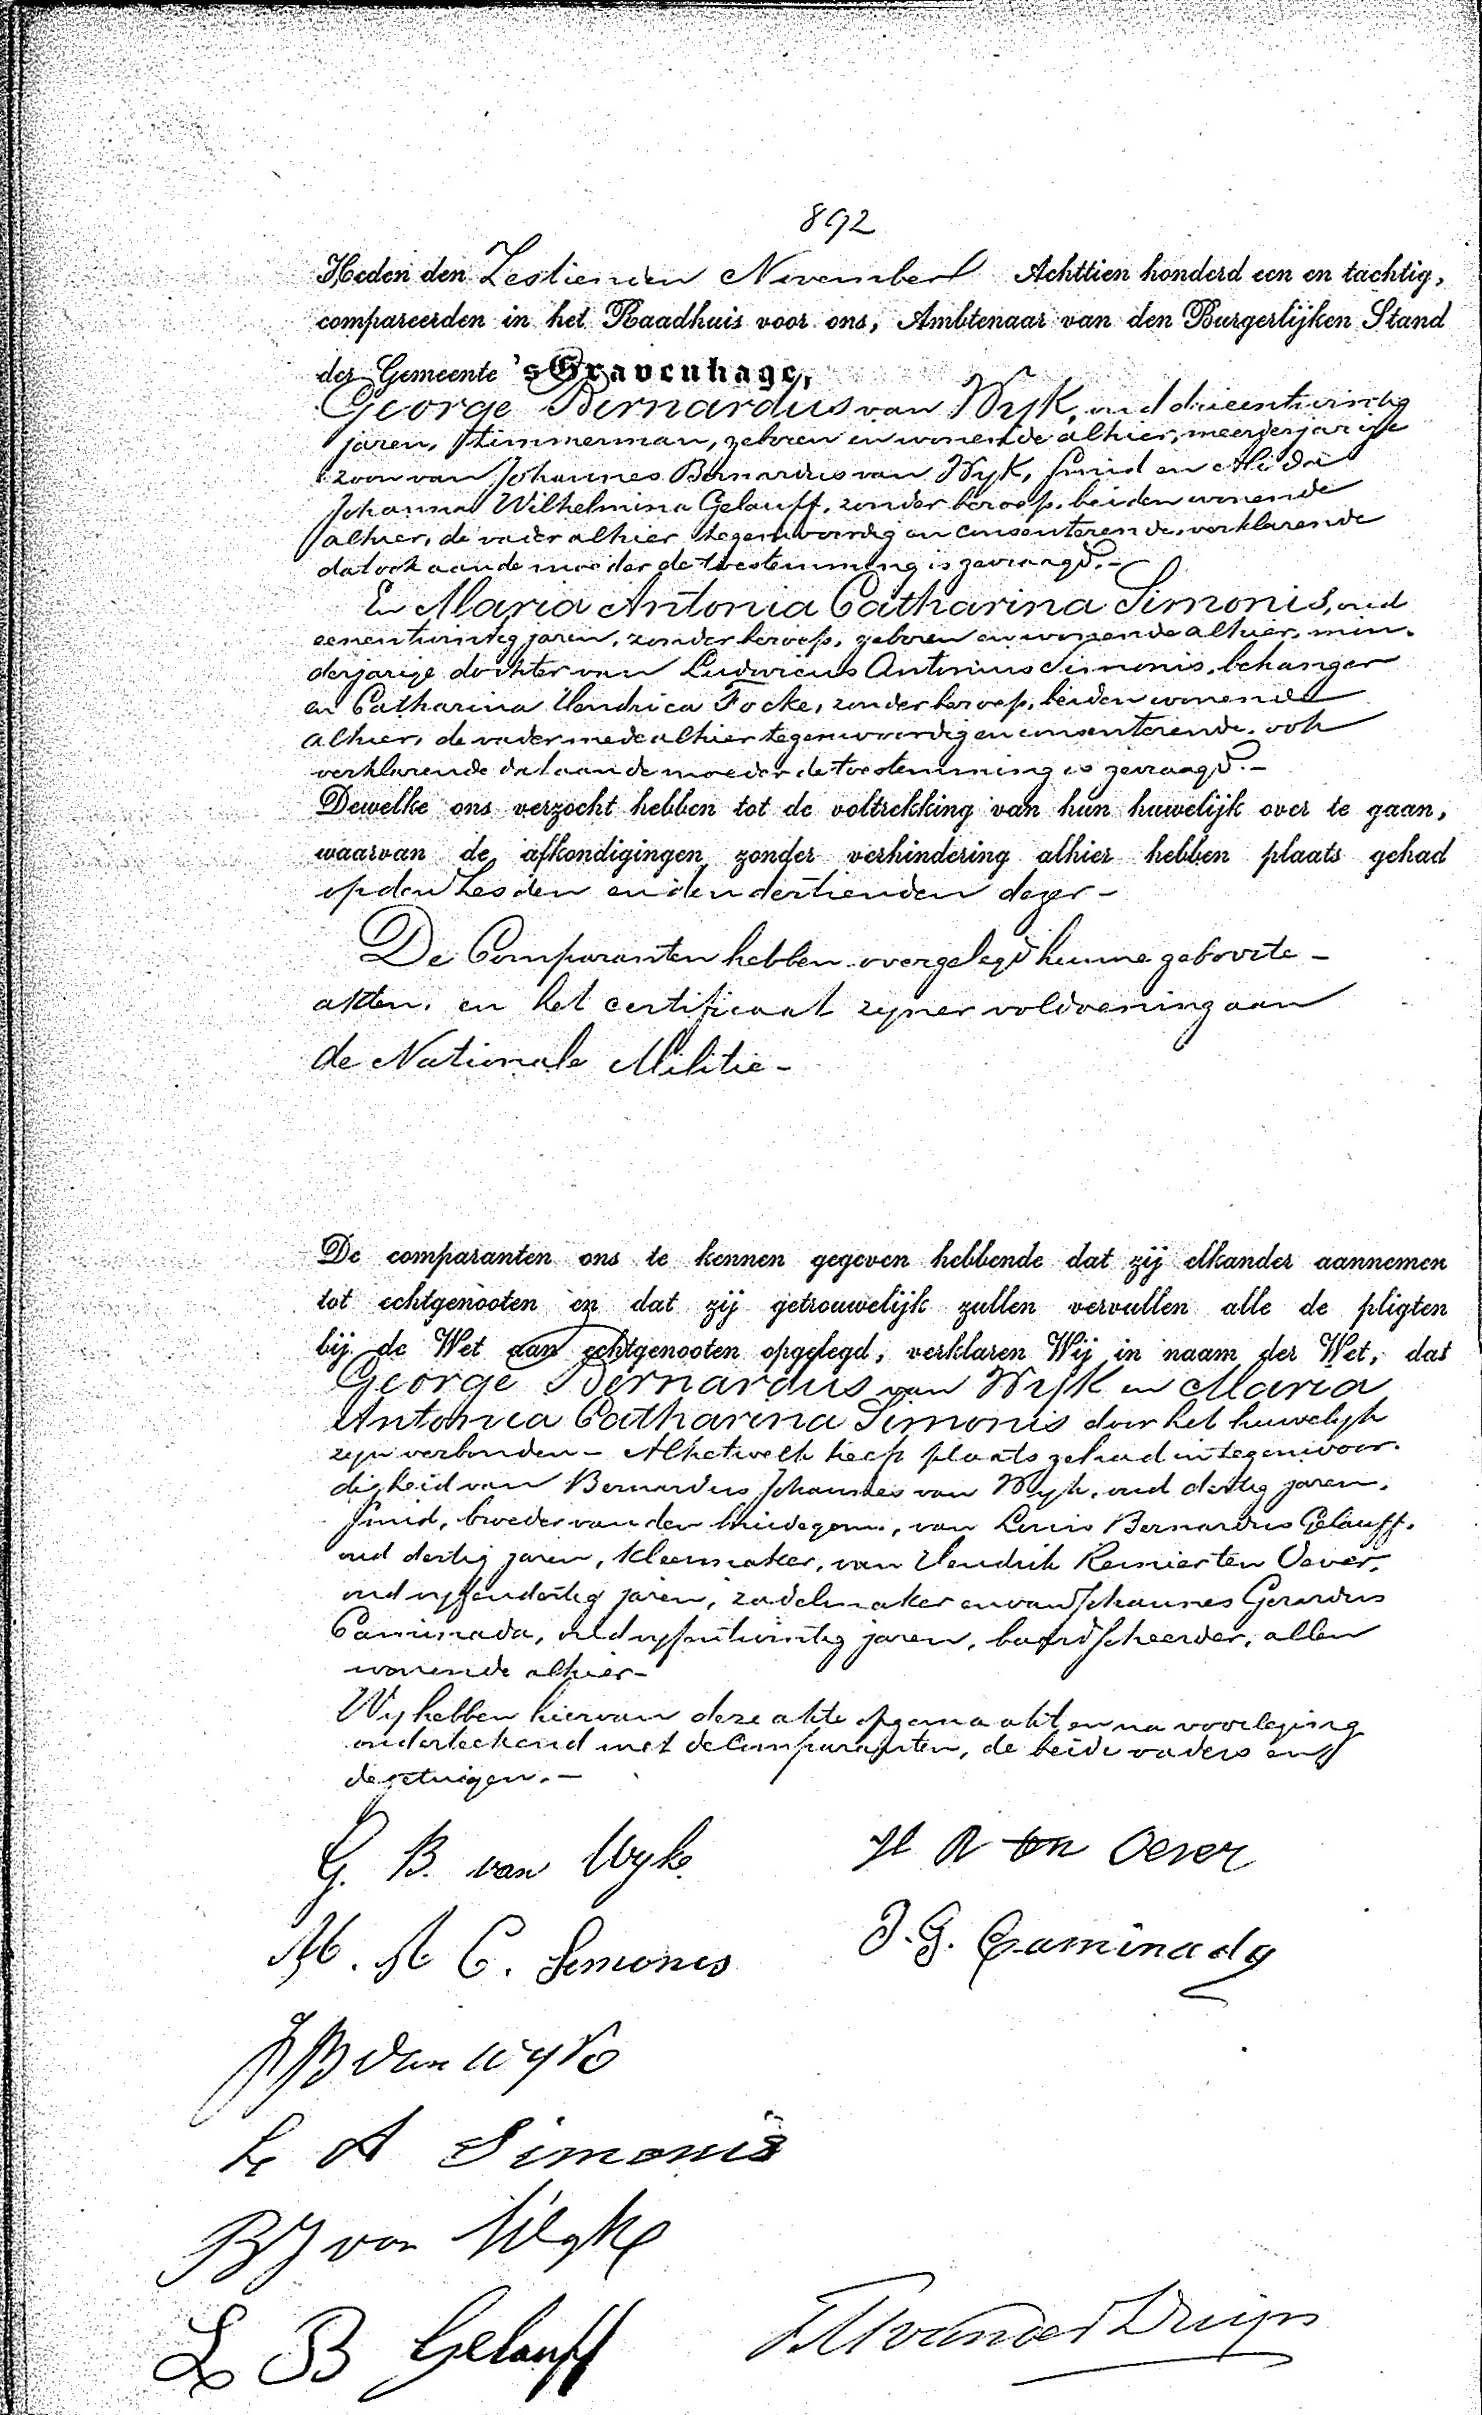 892
Heden den Zestienden November Achttien honderd een en tachtig,
compareerden in het Raadhuis voor ons, Ambtenaar van den Burgerlijken Stand
der Gemeente 's Gravenhage,
George Bernardus van Wyk, oud drieentwintig
jaren, timmerman, geboren en wonende alhier, meerderjarige
zoon van Johannes Bernardus van Wyk, smid en Alida
Johanna Wilhelmina Gelauff, zonder beroep, beiden wonende
alhier, de vader alhier tegenwoordig en consenterende, verklarende
dat ook aan de moeder de toestemming is gevraagd.-
En Maria Antonia Catharina Simonis, oud
eenentwintig jaren, zonder beroep, geboren en wonende alhier, min-
derjarige dochter van Ludovicus Antonius Simonis, behanger
en Catharina Hendrica Focke, zonder beroep, beiden wonende
alhier, de vader mede alhier tegenwoordig en consenterende, ook
verklarende dat aan de moeder de toestemming is gevraagd.-
Dewelke ons verzocht hebben tot de voltrekking van hun huwelijk over te gaan,
waarvan de afkondigingen zonder verhindering alhier hebben plaats gehad
op den Zesden en den dertienden dezer-
De Comparanten hebben overgelegd hunne geboorte-
akten, en het certificaat zyner voldoening aan
de Nationale Militie-
De comparanten ons te kennen gegeven hebbende dat zij elkander aannemen
tot echtgenooten en dat zij getrouwelijk zullen vervullen alle de pligten
bij de Wet aan echtgenooten opgelegd, verklaren Wij in naam der Wet, dat
George Bernardus van Wyk en Maria
Antonia Catharina Simonis door het huwelyk
zyn verbonden- Alhetwelk heeft plaats gehad in tegenwoor-
digheid van Bernardus Johannes van Wyk, oud dertig jaren,
smid, broeder van den bruidegom, van Louis Bernardus Gelauff,
oud dertig jaren, kleermaker, van Hendrik Reinier ten Oever,
oud vyfendertig jaren, zadelmaker en van Johannes Gerardus
Caminada, oud vyfentwintig jaren, baardscheerder, allen
wonende alhier-
Wy hebben hiervan deze akte opgemaakt en na voorlezing
onderteekend met de Comparanten, de beide vaders en
de getuigen.-
G. B. van Wyk
H R ten Oever
M. A C. Simonis
J. G. Caminada
J B van Wyk
L A Simonis
B J van Wyk
L B Gelauff
van der Duyn